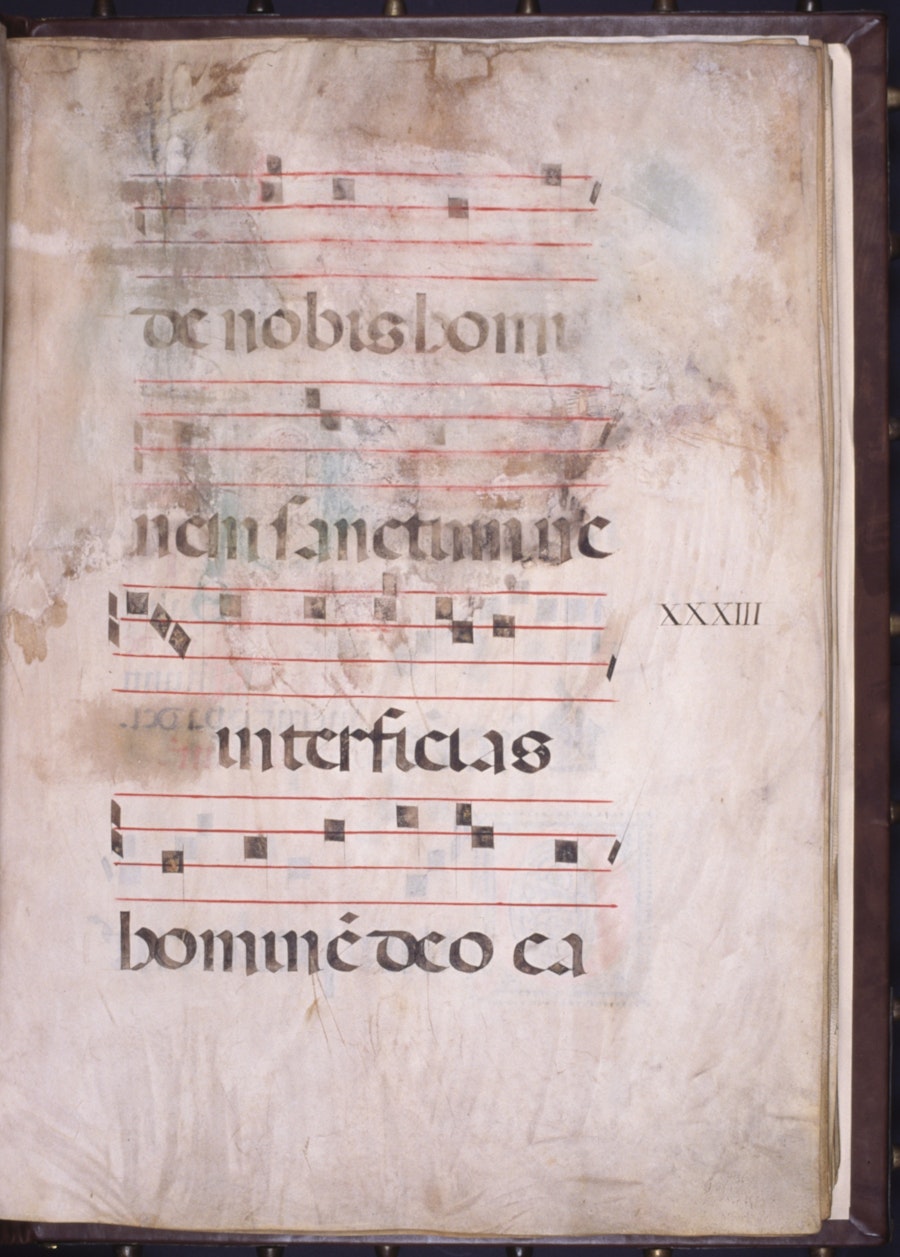 de nobis homi
nem sanctum ne
interficias
XXXIII
hominé deo ca